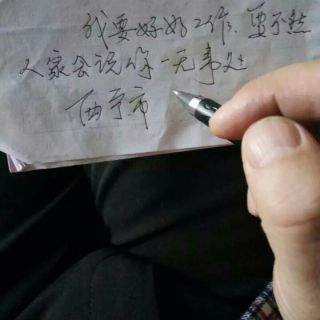 我要好好工作，要不然
人家会说你一无事处
西宁市